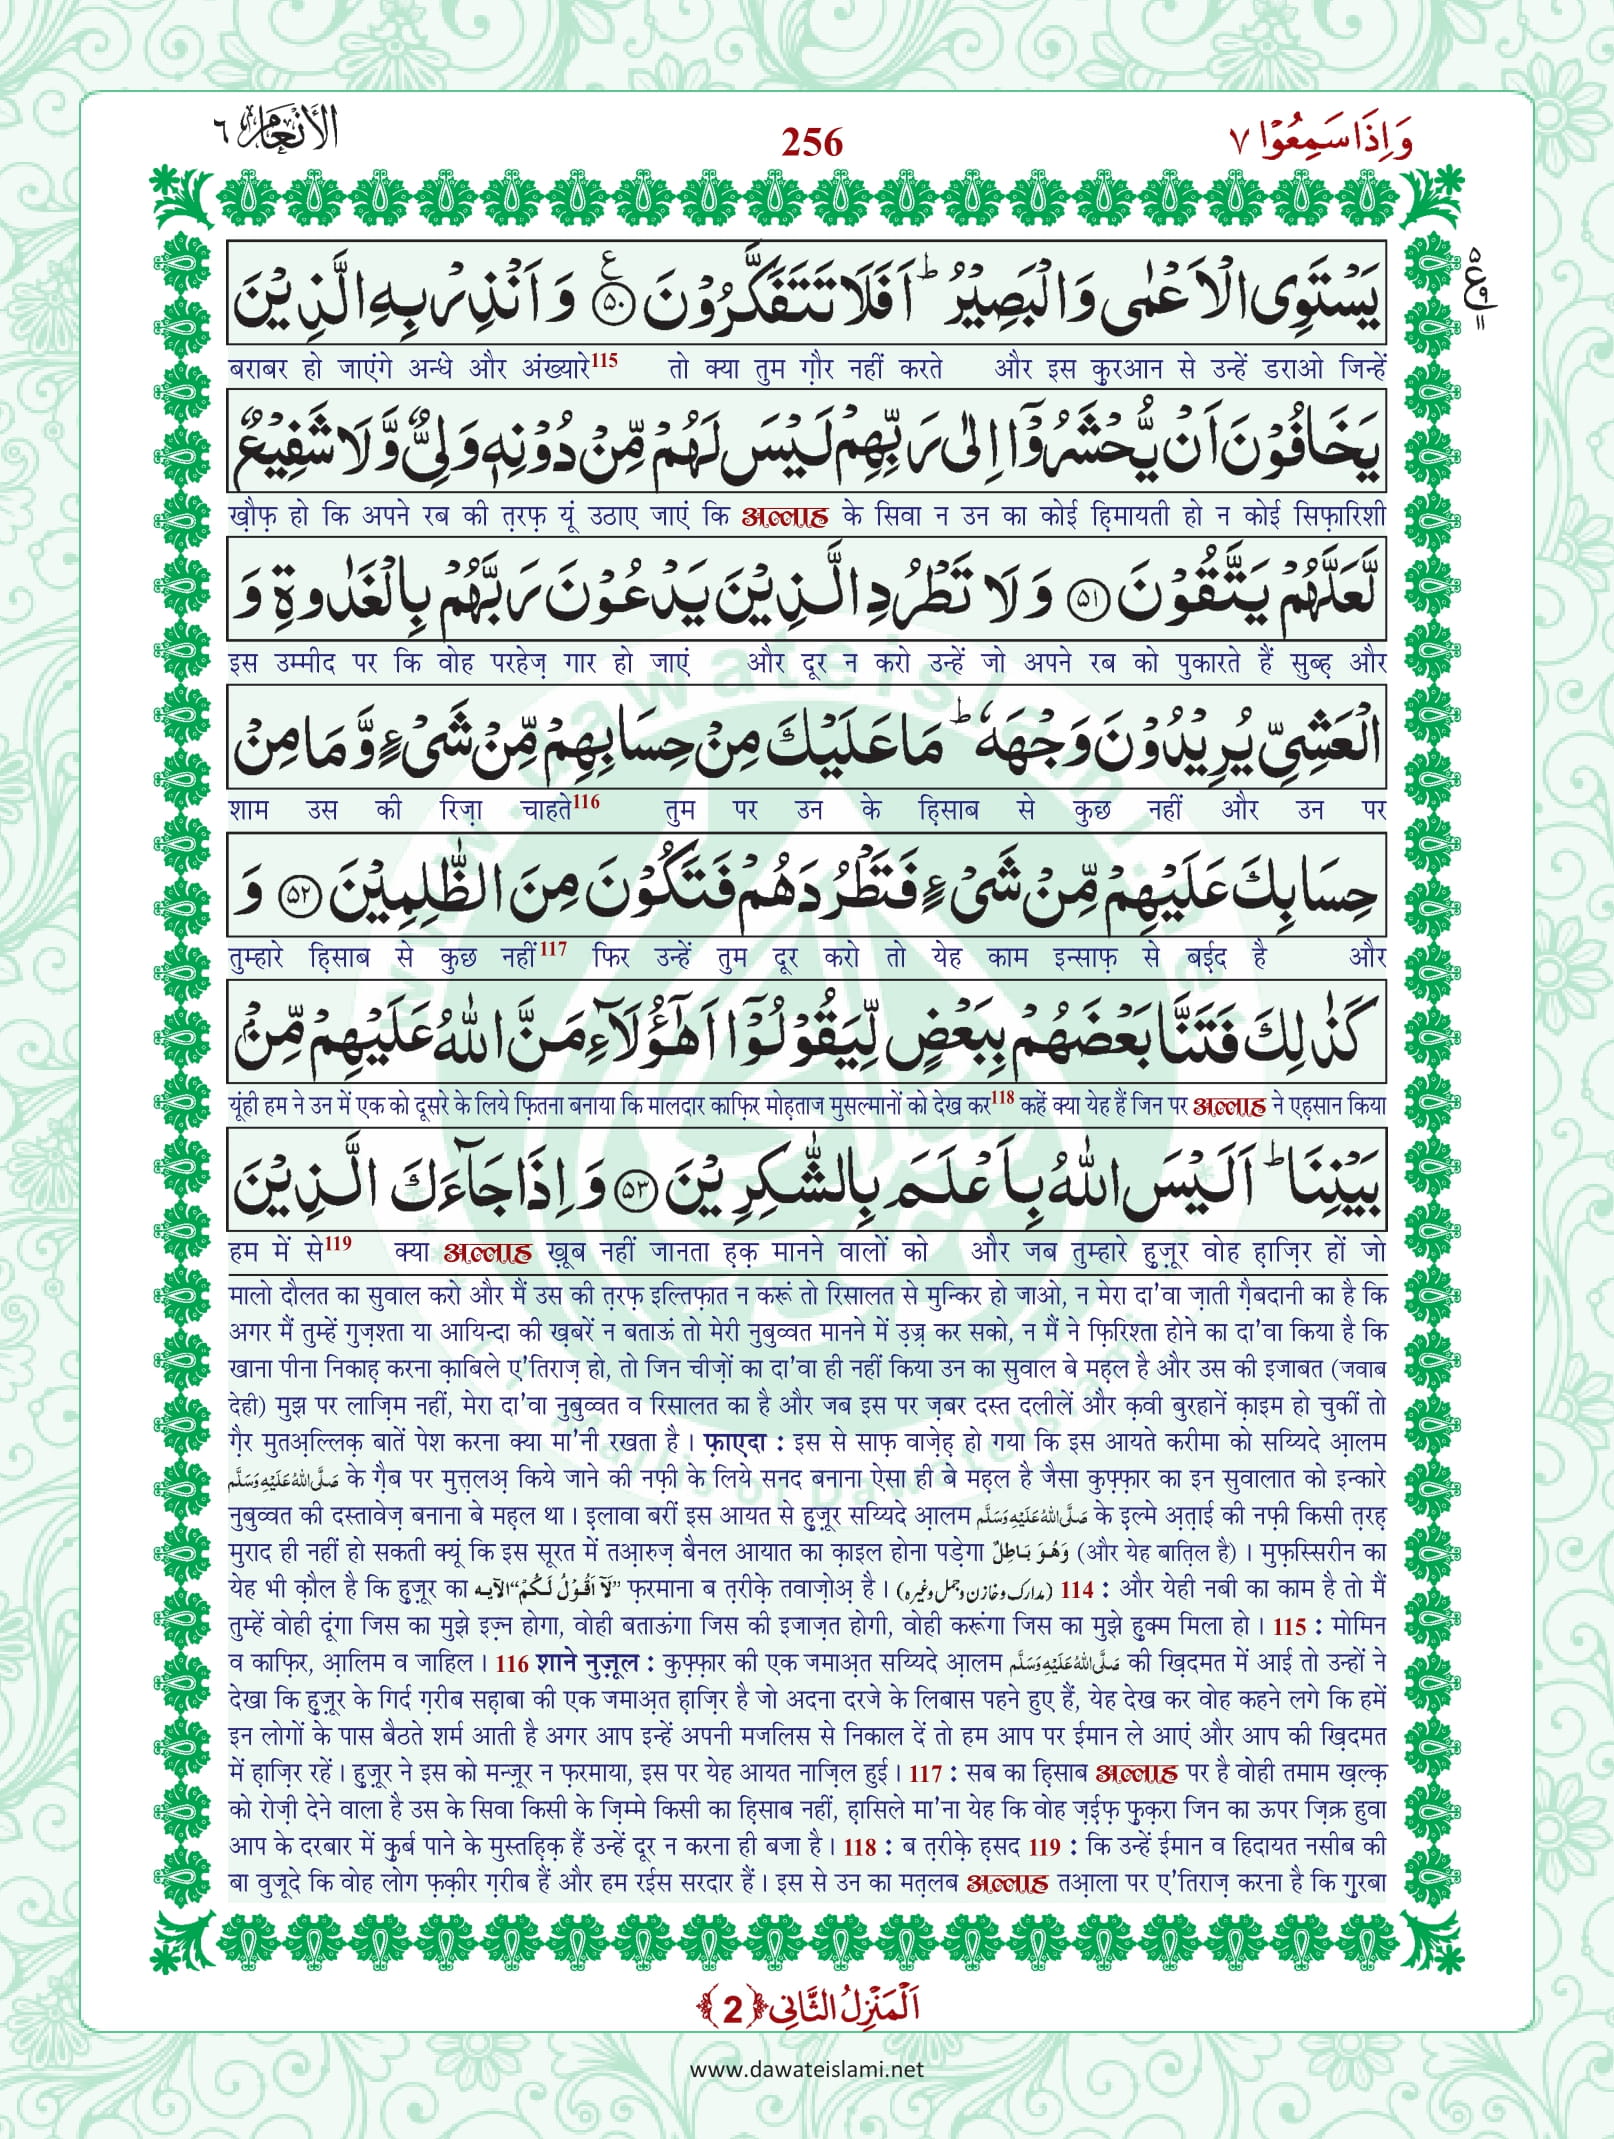 الأنعام ٦
256
وَ اِذَا سَمِعُوْا ٧
یَسْتَوِی الْاَعْمٰى وَ الْبَصِیْرُؕ اَفَلَا تَتَفَكَّرُوْنَ۠ ﴿۵۰﴾ وَ اَنْذِرْ بِهِ الَّذِیْنَ
बराबर हो जाएंगे अन्धे और अंख्यारे115 तो क्या तुम ग़ौर नहीं करते और इस कुरआन से उन्हें डराओ जिन्हें
یَخَافُوْنَ اَنْ یُّحْشَرُوْۤا اِلٰى رَبِّهِمْ لَیْسَ لَهُمْ مِّنْ دُوْنِهٖ وَلِیٌّ وَّ لَا شَفِیْعٌ
ख़ौफ़ हो कि अपने रब की त़रफ़ यूं उठाए जाएं कि अल्लाह के सिवा न उन का कोई हि़मायती हो न कोई सिफ़ारिशी
لَّعَلَّهُمْ یَتَّقُوْنَ ﴿۵۱﴾ وَ لَا تَطْرُدِ الَّذِیْنَ یَدْعُوْنَ رَبَّهُمْ بِالْغَدٰوةِ وَ
इस उम्मीद पर कि वोह परहेज़ गार हो जाएं और दूर न करो उन्हें जो अपने रब को पुकारते हैं सुब्ह़ और
الْعَشِیِّ یُرِیْدُوْنَ وَجْهَهٗؕ مَا عَلَیْكَ مِنْ حِسَابِهِمْ مِّنْ شَیْءٍ وَّ مَا مِنْ
शाम उस की रिज़ा चाहते116 तुम पर उन के हि़साब से कुछ नहीं और उन पर
حِسَابِكَ عَلَیْهِمْ مِّنْ شَیْءٍ فَتَطْرُدَهُمْ فَتَكُوْنَ مِنَ الظّٰلِمِیْنَ ﴿۵۲﴾ وَ
तुम्हारे हि़साब से कुछ नहीं117 फिर उन्हें तुम दूर करो तो येह काम इन्साफ़ से बईद है और
كَذٰلِكَ فَتَنَّا بَعْضَهُمْ بِبَعْضٍ لِّیَقُوْلُوْۤا اَهٰۤؤُلَآءِ مَنَّ اللّٰهُ عَلَیْهِمْ مِّنْۢ
यूंही हम ने उन में एक को दूसरे के लिये फ़ितना बनाया कि मालदार काफ़िर मोह़ताज मुसल्मानों को देख कर118 कहें क्या येह हैं जिन पर अल्लाह ने एह़सान किया
بَیْنِنَاؕ اَلَیْسَ اللّٰهُ بِاَعْلَمَ بِالشّٰكِرِیْنَ ﴿۵۳﴾ وَ اِذَا جَآءَكَ الَّذِیْنَ
हम में से119 क्या अल्लाह ख़ूब नहीं जानता ह़क़ मानने वालों को और जब तुम्हारे हु़ज़ूर वोह ह़ाज़िर हों जो
मालो दौलत का सुवाल करो और मैं उस की त़रफ़ इल्तिफ़ात न करूं तो रिसालत से मुन्किर हो जाओ, न मेरा दा'वा ज़ाती ग़ैबदानी का है कि
अगर मैं तुम्हें गुज़श्ता या आयिन्दा की ख़बरें न बताऊं तो मेरी नुबुव्वत मानने में उ़ज़्र कर सको, न मैं ने फ़िरिश्ता होने का दा'वा किया है कि
खाना पीना निकाह़ करना क़ाबिले ए'तिराज़ हो, तो जिन चीज़ों का दा'वा ही नहीं किया उन का सुवाल बे मह़ल है और उस की इजाबत (जवाब
देही) मुझ पर लाज़िम नहीं, मेरा दा'वा नुबुव्वत व रिसालत का है और जब इस पर ज़बर दस्त दलीलें और क़वी बुरहानें क़ाइम हो चुकीं तो
ग़ैर मुतअ़ल्लिक़ बातें पेश करना क्या मा'नी रखता है। फ़ाएदा : इस से साफ़ वाज़ेह़ हो गया कि इस आयते करीमा को सय्यिदे आ़लम
صَلَّى اللّٰهُ عَلَيْهِ وَسَلَّم के ग़ैब पर मुत़्त़लअ़ किये जाने की नफ़ी के लिये सनद बनाना ऐसा ही बे मह़ल है जैसा कुफ़्फ़ार का इन सुवालात को इन्कारे
नुबुव्वत की दस्तावेज़ बनाना बे मह़ल था। इलावा बरीं इस आयत से हु़ज़ूर सय्यिदे आ़लम صَلَّى اللّٰهُ عَلَيْهِ وَسَلَّم के इ़ल्मे अ़त़ाई की नफ़ी किसी त़रह़
मुराद ही नहीं हो सकती क्यूं कि इस सूरत में तआ़रुज़ बैनल आयात का क़ाइल होना पड़ेगा وَهُوَ بَاطِلٌ (और येह बात़िल है)। मुफ़स्सिरीन का
येह भी क़ौल है कि हु़ज़ूर का ”لَآ اَقُوْلُ لَكُمْ“ الآيه फ़रमाना ब त़रीक़े तवाज़ोअ़ है। (مدارك وخازن وجمل وغيره) 114 : और येही नबी का काम है तो मैं
तुम्हें वोही दूंगा जिस का मुझे इज़्न होगा, वोही बताऊंगा जिस की इजाज़त होगी, वोही करूंगा जिस का मुझे हु़क्म मिला हो। 115 : मोमिन
व काफ़िर, आ़लिम व जाहिल। 116 शाने नुज़ूल : कुफ़्फ़ार की एक जमाअ़त सय्यिदे आ़लम صَلَّى اللّٰهُ عَلَيْهِ وَسَلَّم की ख़िदमत में आई तो उन्हों ने
देखा कि हु़ज़ूर के गिर्द ग़रीब सह़ाबा की एक जमाअ़त ह़ाज़िर है जो अदना दरजे के लिबास पहने हुए हैं, येह देख कर वोह कहने लगे कि हमें
इन लोगों के पास बैठते शर्म आती है अगर आप इन्हें अपनी मजलिस से निकाल दें तो हम आप पर ईमान ले आएं और आप की ख़िदमत
में ह़ाज़िर रहें। हु़ज़ूर ने इस को मन्ज़ूर न फ़रमाया, इस पर येह आयत नाज़िल हुई। 117 : सब का हि़साब अल्लाह पर है वोही तमाम ख़ल्क़
को रोज़ी देने वाला है उस के सिवा किसी के ज़िम्मे किसी का हि़साब नहीं, ह़ासिले मा'ना येह कि वोह ज़ई़फ़ फ़ुक़रा जिन का ऊपर ज़िक्र हुवा
आप के दरबार में क़ुर्ब पाने के मुस्तह़िक़ हैं उन्हें दूर न करना ही बजा है। 118 : ब त़रीक़े ह़सद 119 : कि उन्हें ईमान व हिदायत नसीब की
बा वुजूदे कि वोह लोग फ़क़ीर ग़रीब हैं और हम रईस सरदार हैं। इस से उन का मत़लब अल्लाह तआ़ला पर ए'तिराज़ करना है कि ग़ुरबा
اَلْمَنْزِلُ الثَّانِی ﴿2﴾
www.dawateislami.net